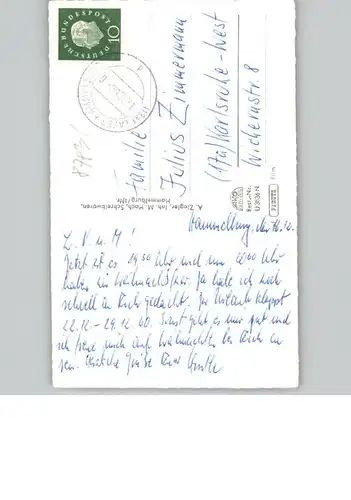 DEUTSCHE BUNDESPOST
10
Familie
Julius Zimmermann
(17a) Karlsruhe-West
Wichernstr. 8
A. Ziegler, Inh. M. Hoch, Schreibwaren,
Hammelburg/Ufr.
Best.-Nr.
Hammelburg, den 16.12.
L. V. u. M!
Jetzt ist es 19.30 Uhr und um 20.00 Uhr
haben wir Weihnachtsfeier. Da habe ich noch
schnell an Euch gedacht. Der Urlaub klappt
22.12. - 29.12. 60. Sonst geht es mir gut und
ich freue mich auf Weihnachten bei Euch zu
sein. Herzliche Grüße Euer